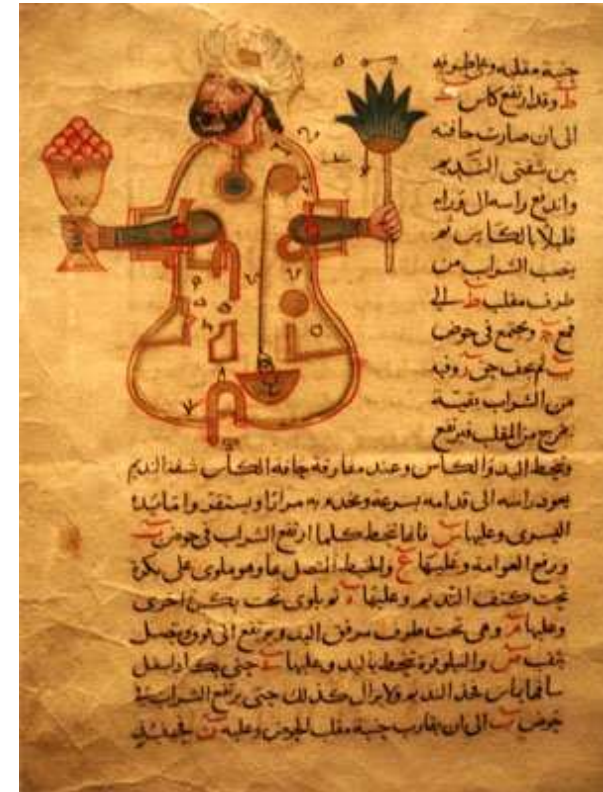 جنبة مقلبه وعلى طرفه
ط وقدار تفع كاس
الى ان صارت حافته
بين شفتى النديم
واندفع راسه الى وراه
قليلا بالكاس ثم
يصب الشراب من
طرف مقلب ط الى
قمع ويجتمع فى حوض
لم يجف حتى وفيه
من الشراب بقيته
يخرج من المقلب فيرتفع
وتنحط اليد والكاس وعند مفارقة حافة الكأس شفة النديم
يعود راسه الى قدامه بسرعة ويحدو به مرارا ويستقر واما يده
اليسرى وعليها س فانها تنحط كلما ارتفع الشراب فى حوض
ورفع العوامة وعليها ع والخيط المتصل بها وهو ملوى على بكرة
تحت كتف النديم وعليها ثم يلوى تحت بكرة اخرى
وعليها وهى تحت طرف مرفق اليد ويرتفع الى فوق ويتصل
بثقب والنيلوفرة تنحط باليد وعليها حتى يكاد اسفل
ساقها يماس فخذ النديم ولا يزال كذلك حتى يرتفع الشراب فى
حوض الى ان يقارب جنبة مقلب الحوض وعليه